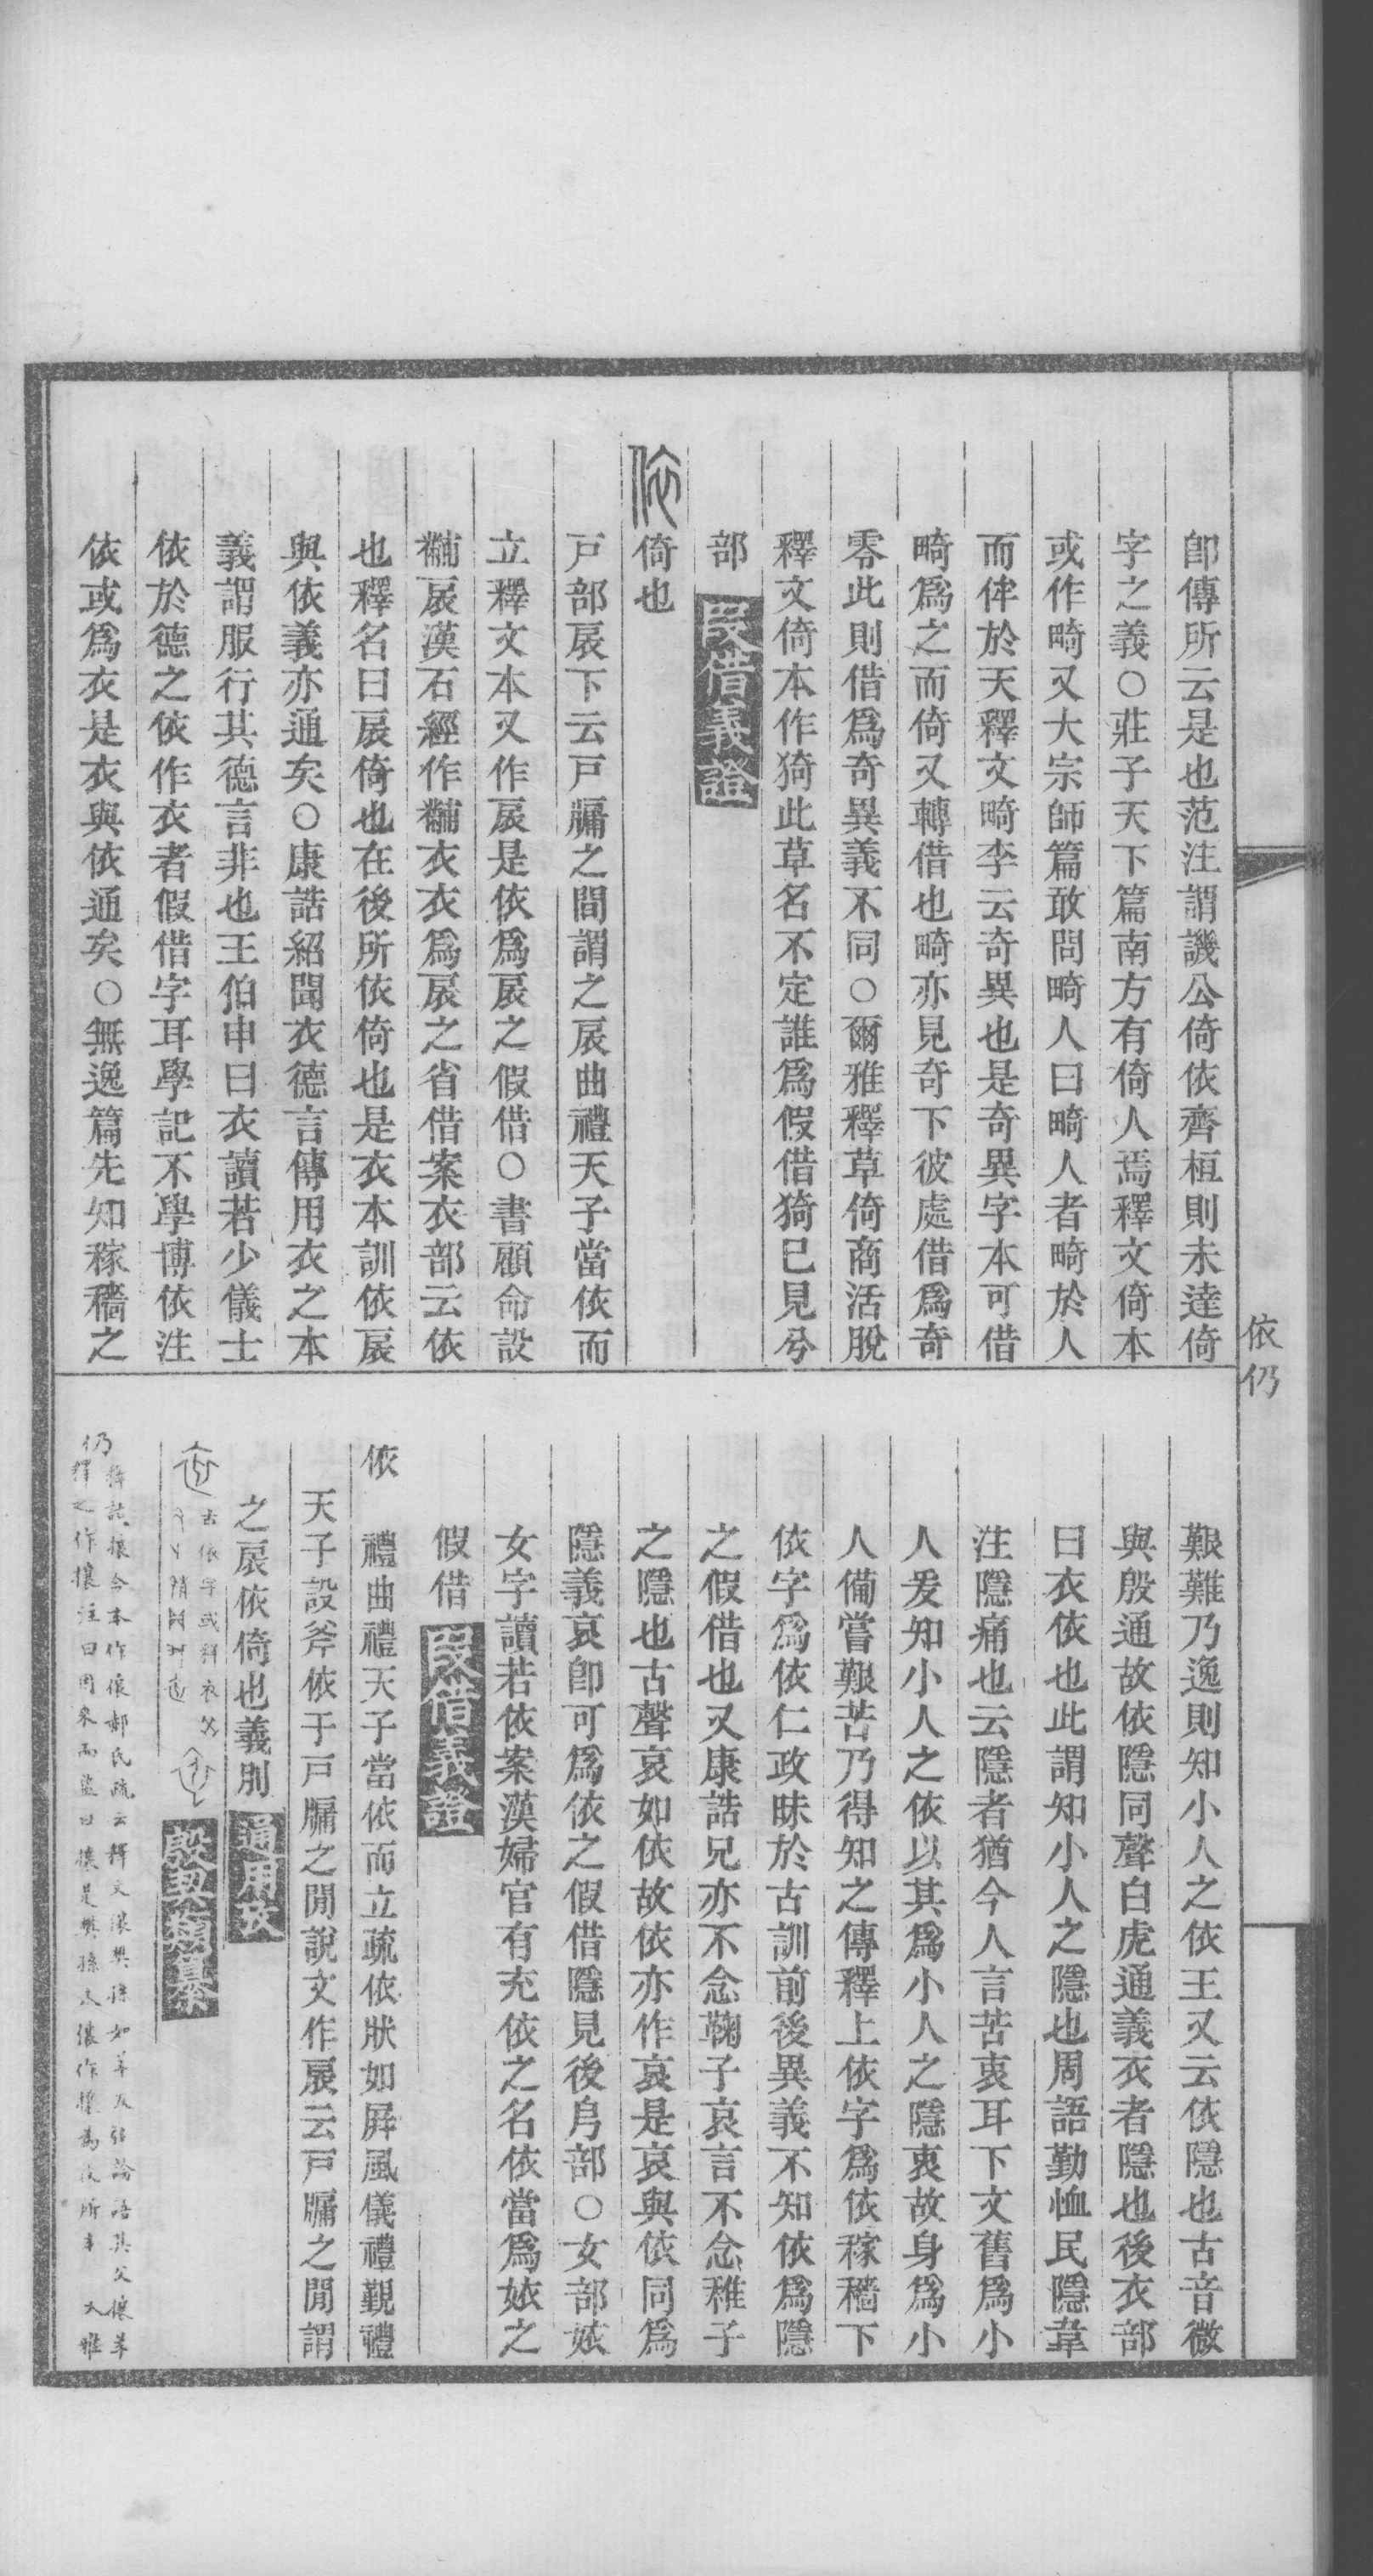 卽傳所云是也范注謂譏公倚依齊桓則未達倚
字之義○莊子天下篇南方有倚人焉釋文倚本
或作畸又大宗師篇敢問畸人曰畸人者畸於人
而侔於天釋文畸李云奇異也是奇異字本可借
畸爲之而倚又轉借也畸亦見奇下彼處借爲奇
零此則借爲奇異義不同○爾雅釋草倚商活脫
釋文倚本作猗此草名不定誰爲假借猗已見兮
部 叚借義證
倚也
戶部扆下云戶牖之間謂之扆曲禮天子當依而
立釋文本又作扆是依爲扆之假借○書顧命設
黼扆漢石經作黼衣衣爲扆之省借案衣部云依
也釋名曰扆倚也在後所依倚也是衣本訓依扆
與依義亦通矣○康誥紹聞衣德言傳用衣之本
義謂服行其德言非也王伯申曰衣讀若少儀士
依於德之依作衣者假借字耳學記不學博依注
依或爲衣是衣與依通矣○無逸篇先知稼穡之
艱難乃逸則知小人之依王又云依隱也古音微
與殷通故依隱同聲白虎通義衣者隱也後衣部
曰衣依也此謂知小人之隱也周語勤恤民隱韋
注隱痛也云隱者猶今人言苦衷耳下文舊爲小
人爰知小人之依以其爲小人之隱衷故身爲小
人備嘗艱苦乃得知之傳釋上依字爲依稼穡下
依字爲依仁政昧於古訓前後異義不知依爲隱
之假借也又康誥兄亦不念鞠子哀言不念稚子
之隱也古聲哀如依故依亦作哀是哀與依同爲
隱義哀卽可爲依之假借隱見後㐆部○女部㛄
女字讀若依案漢婦官有充依之名依當爲㛄之
假借 叚借義證
依 禮曲禮天子當依而立疏依狀如屏風儀禮覲禮
天子設斧依于戶牖之閒說文作扆云戶牖之閒謂
之扆依倚也義別 通用攷
古依字或釋衣
殷契類纂
仍
依仍